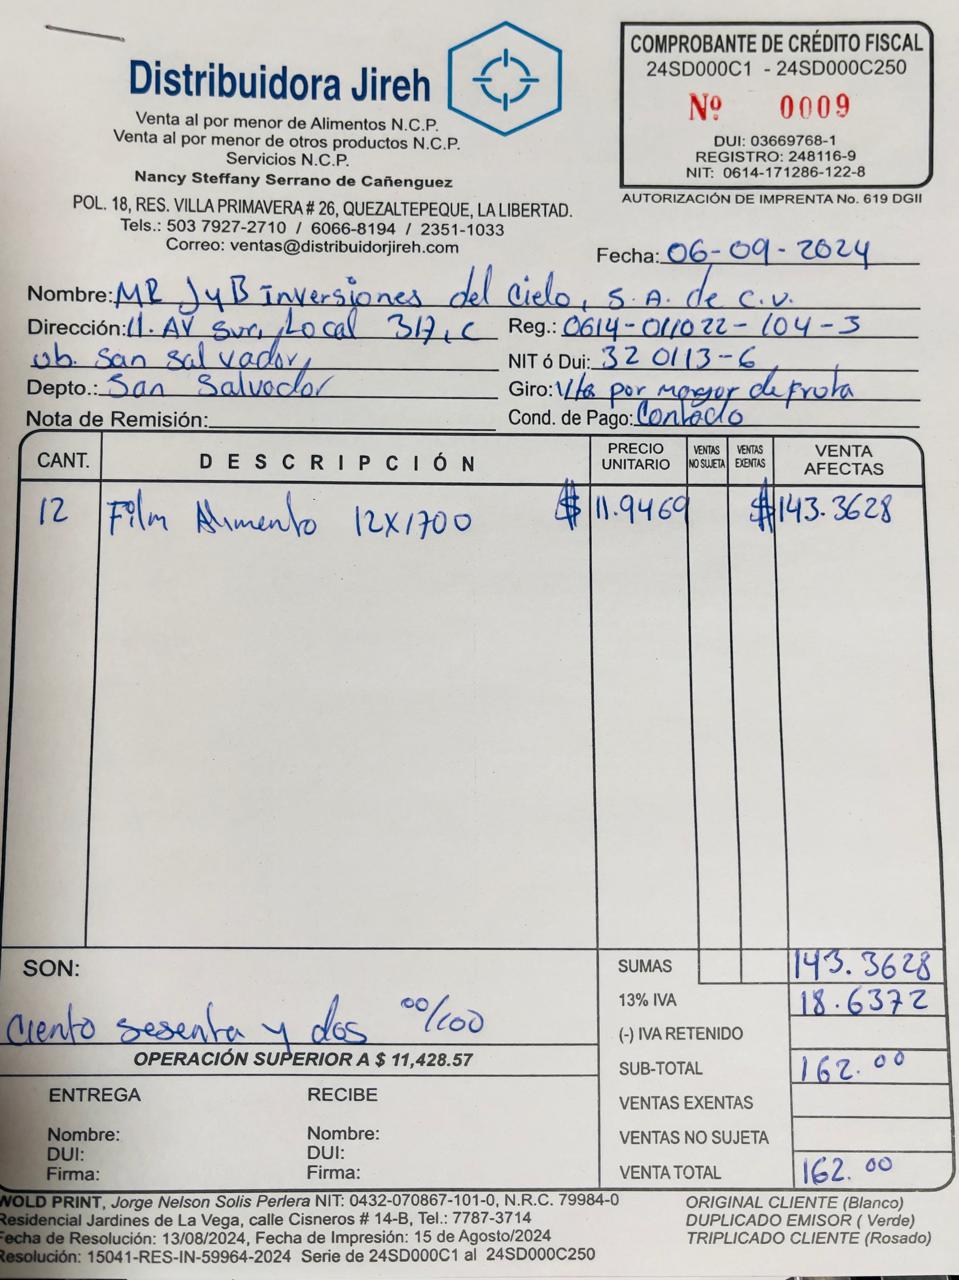 Distribuidora Jireh
Venta al por menor de Alimentos N.C.P.
Venta al por menor de otros productos N.C.P.
Servicios N.C.P.
Nancy Steffany Serrano de Cañenguez
POL. 18, RES. VILLA PRIMAVERA # 26, QUEZALTEPEQUE, LA LIBERTAD.
Tels.: 503 7927-2710 / 6066-8194 / 2351-1033
Correo: ventas@distribuidorjireh.com
COMPROBANTE DE CRÉDITO FISCAL
24SD000C1 - 24SD000C250
Nº 0009
DUI: 03669768-1
REGISTRO: 248116-9
NIT: 0614-171286-122-8
AUTORIZACIÓN DE IMPRENTA No. 619 DGII
Fecha: 06-09-2024
Nombre: MR JyB inversiones del cielo, S.A. de C.V.
Dirección: 11. AV Sur, Local 317, C Reg.: 0614-011022-104-3
ub. San Salvador, NIT ó Dui: 320113-6
Depto.: San Salvador Giro: Vta por mayor de fruta
Nota de Remisión: Cond. de Pago: Contado
CANT. DESCRIPCIÓN PRECIO UNITARIO VENTAS NO SUJETA VENTAS EXENTAS VENTA AFECTAS
12 Film Alimento 12X1700 $ 11.9469 $ 143.3628
SON: SUMAS 143.3628
13% IVA 18.6372
Ciento sesenta y dos 00/100 (-) IVA RETENIDO
OPERACIÓN SUPERIOR A $ 11,428.57 SUB-TOTAL 162.00
ENTREGA RECIBE VENTAS EXENTAS
Nombre: Nombre: VENTAS NO SUJETA
DUI: DUI:
Firma: Firma: VENTA TOTAL 162.00
WOLD PRINT, Jorge Nelson Solis Perlera NIT: 0432-070867-101-0, N.R.C. 79984-0
Residencial Jardines de La Vega, calle Cisneros # 14-B, Tel.: 7787-3714
Fecha de Resolución: 13/08/2024, Fecha de Impresión: 15 de Agosto/2024
Resolución: 15041-RES-IN-59964-2024 Serie de 24SD000C1 al 24SD000C250
ORIGINAL CLIENTE (Blanco)
DUPLICADO EMISOR ( Verde)
TRIPLICADO CLIENTE (Rosado)